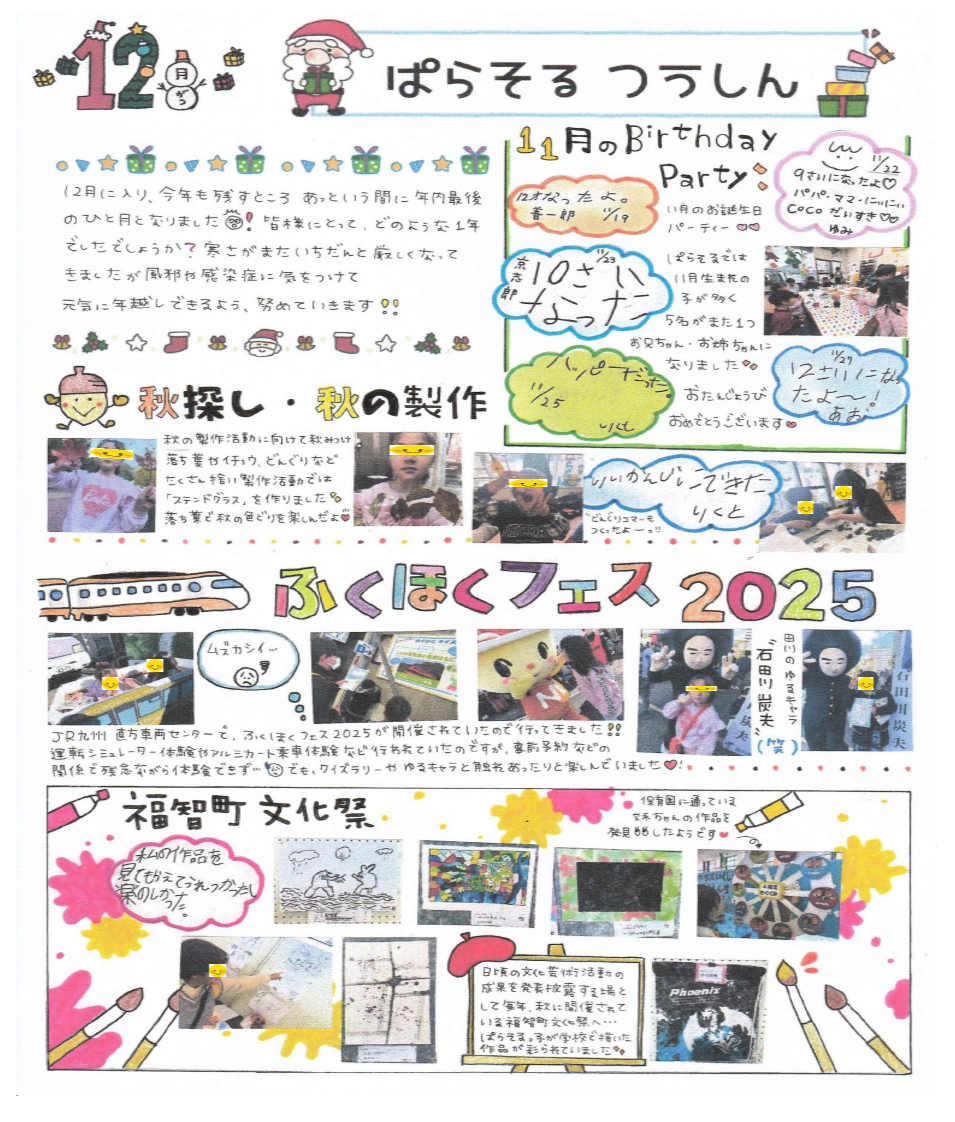 12
月
がつ
ぱらそる つうしん
12月に入り、今年も残すところ あっという間に年内最後
のひと月となりました!皆様にとって、どのような1年
でしたでしょうか?寒さがまたいちだんと厳しくなって
きましたが風邪や感染症に気をつけて
元気に年越しできるよう、努めていきます!!
11月のBirthday
Party
12才なったよ。
11/19
11/22
9さいになったよ♡
パパ・ママ・にぃにぃ
COCOだいすき♡♡
ゆみ
11月のお誕生日
パーティー♡♡
京志郎
11/23
10さい
なった
ぱらそるでは
11月生まれの
子が多く
5名がまた1つ
お兄ちゃん・お姉ちゃんに
なりました
おたんじょうび
おめでとうございます♥
ハッピーだった
11/25
りくと
11/27
12さいになっ
たよ〜!
あお
秋探し・秋の製作
秋の製作活動に向けて秋みつけ
落ち葉やイチョウ、どんぐりなど
たくさん拾い製作活動では
「ステンドグラス」を作りました
落ち葉で秋の色どりを楽しんだよ♥
Barbie
いいかんじにできた
りくと
"どんぐりコマ"も
つくったよーっ!!
ふくほくフェス 2025
ムズカシイ…
田川のゆるキャラ
"石田川炭夫"
(笑)
石田川炭夫
JR九州 直方車両センターで、ふくほくフェス2025が開催されていたので行ってきました!!
運転シミュレーター体験やアルミカート乗車体験など行われていたのですが、事前予約などの
関係で残念ながら体験できず…でも、クイズラリーやゆるキャラと触れあったりと楽しんでいました♥!
福智町 文化祭
保育園に通っている
妹ちゃんの作品を
発見したようです♥
私の作品を
見てもらえてうれつかったし
楽のしかった。
日頃の文化芸術活動の
成果を発表披露する場と
して毎年、秋に開催されて
いる福智町文化祭へ…
ぱらそるっ子が学校で描いた
作品が彩られていました
Phoenix